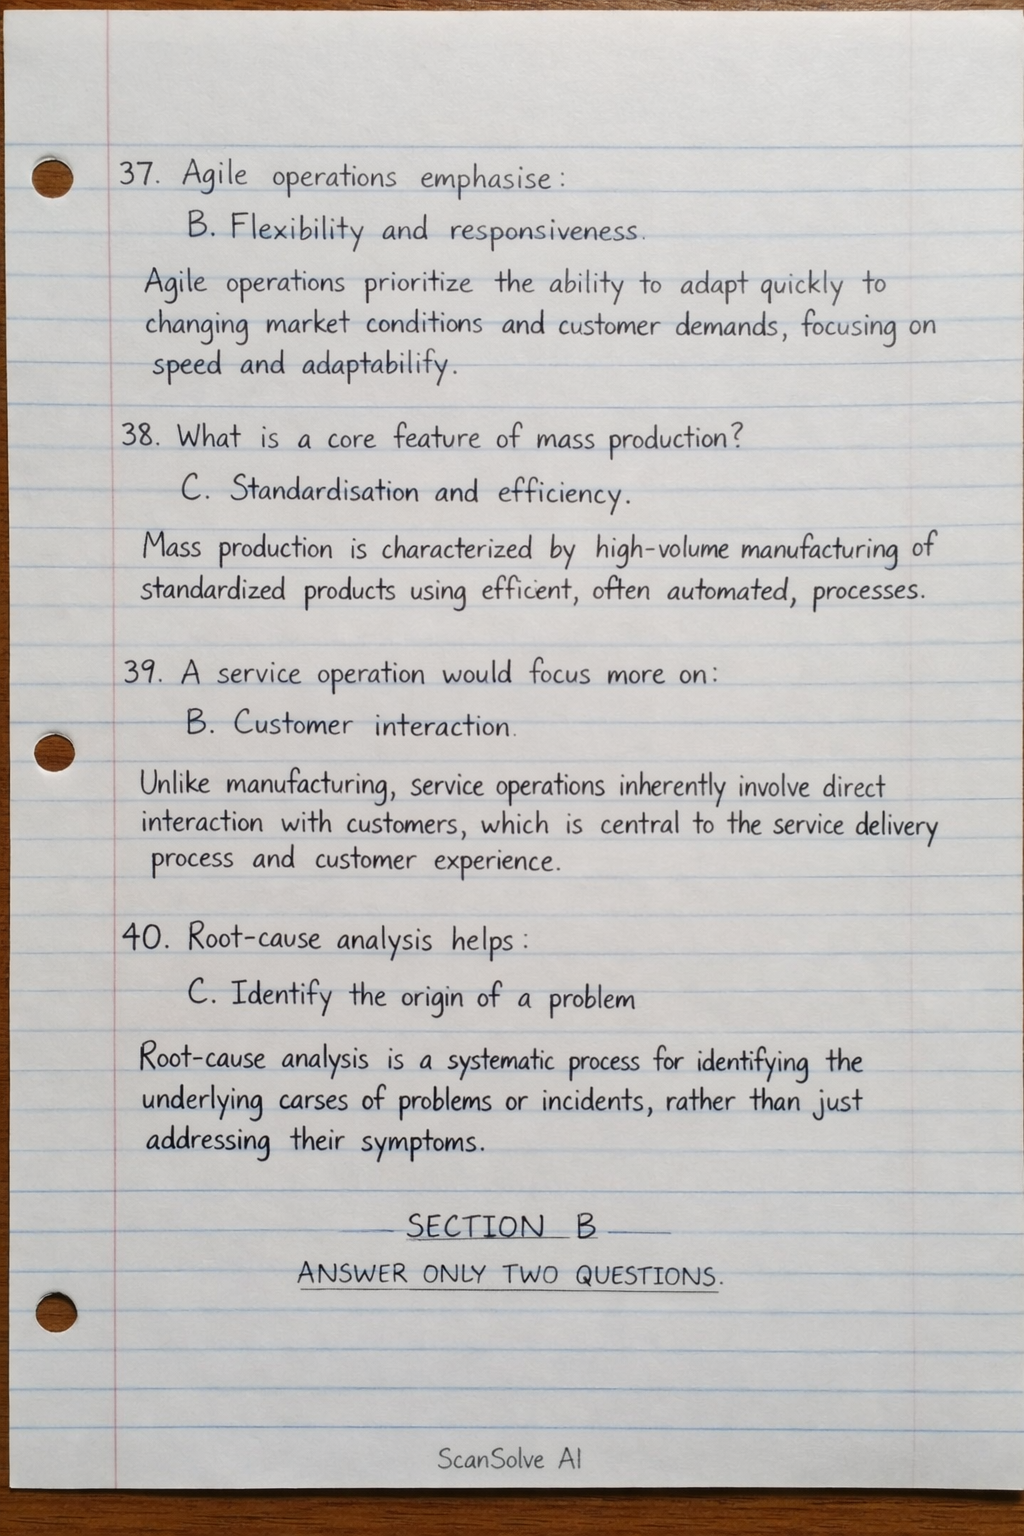 37. Agile operations emphasise:
B. Flexibility and responsiveness.
Agile operations prioritize the ability to adapt quickly to
changing market conditions and customer demands, focusing on
speed and adaptability.
38. What is a core feature of mass production?
C. Standardisation and efficiency.
Mass production is characterized by high-volume manufacturing of
standardized products using efficient, often automated, processes.
39. A service operation would focus more on:
B. Customer interaction.
Unlike manufacturing, service operations inherently involve direct
interaction with customers, which is central to the service delivery
process and customer experience.
40. Root-cause analysis helps:
C. Identify the origin of a problem
Root-cause analysis is a systematic process for identifying the
underlying carses of problems or incidents, rather than just
addressing their symptoms.
SECTION B
ANSWER ONLY TWO QUESTIONS.
ScanSolve AI